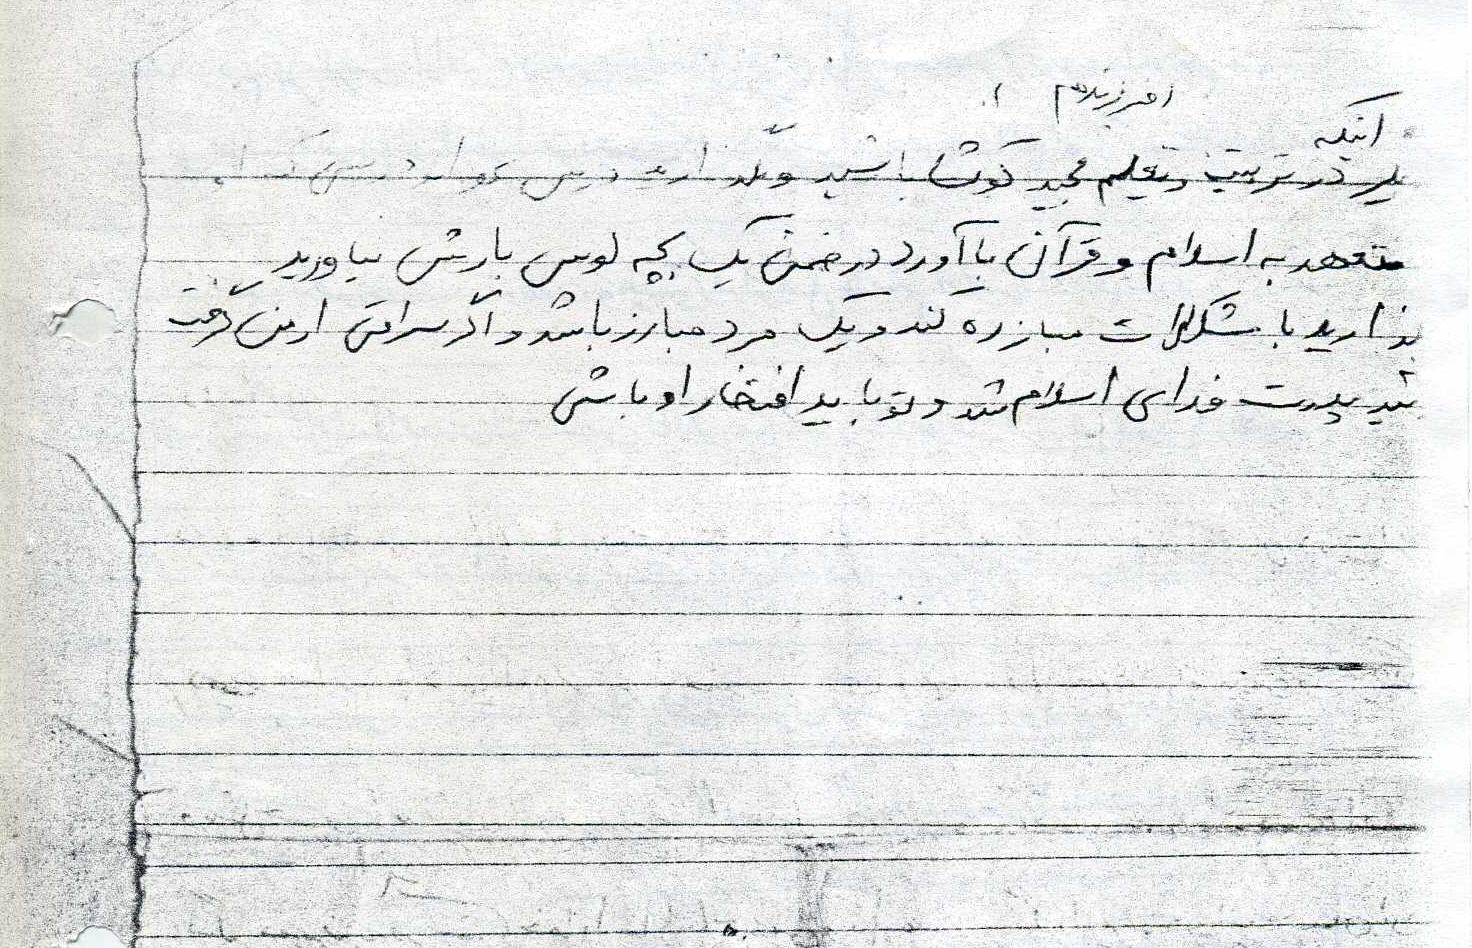 (فرزندم)
اینکه
در تربیت و تعلیم مجید کوشا باشید و نگذارید درس
متعهد به اسلام و قرآن بار آورد در ضمن یک بچه لوس بارش نیاورید
بذارید با مشکلات مبارزه کند و یک مرد مبارز باشد و اگر سراغی از من گرفت
بگید پدرت فدای اسلام شد و تو باید افتخار او باشی